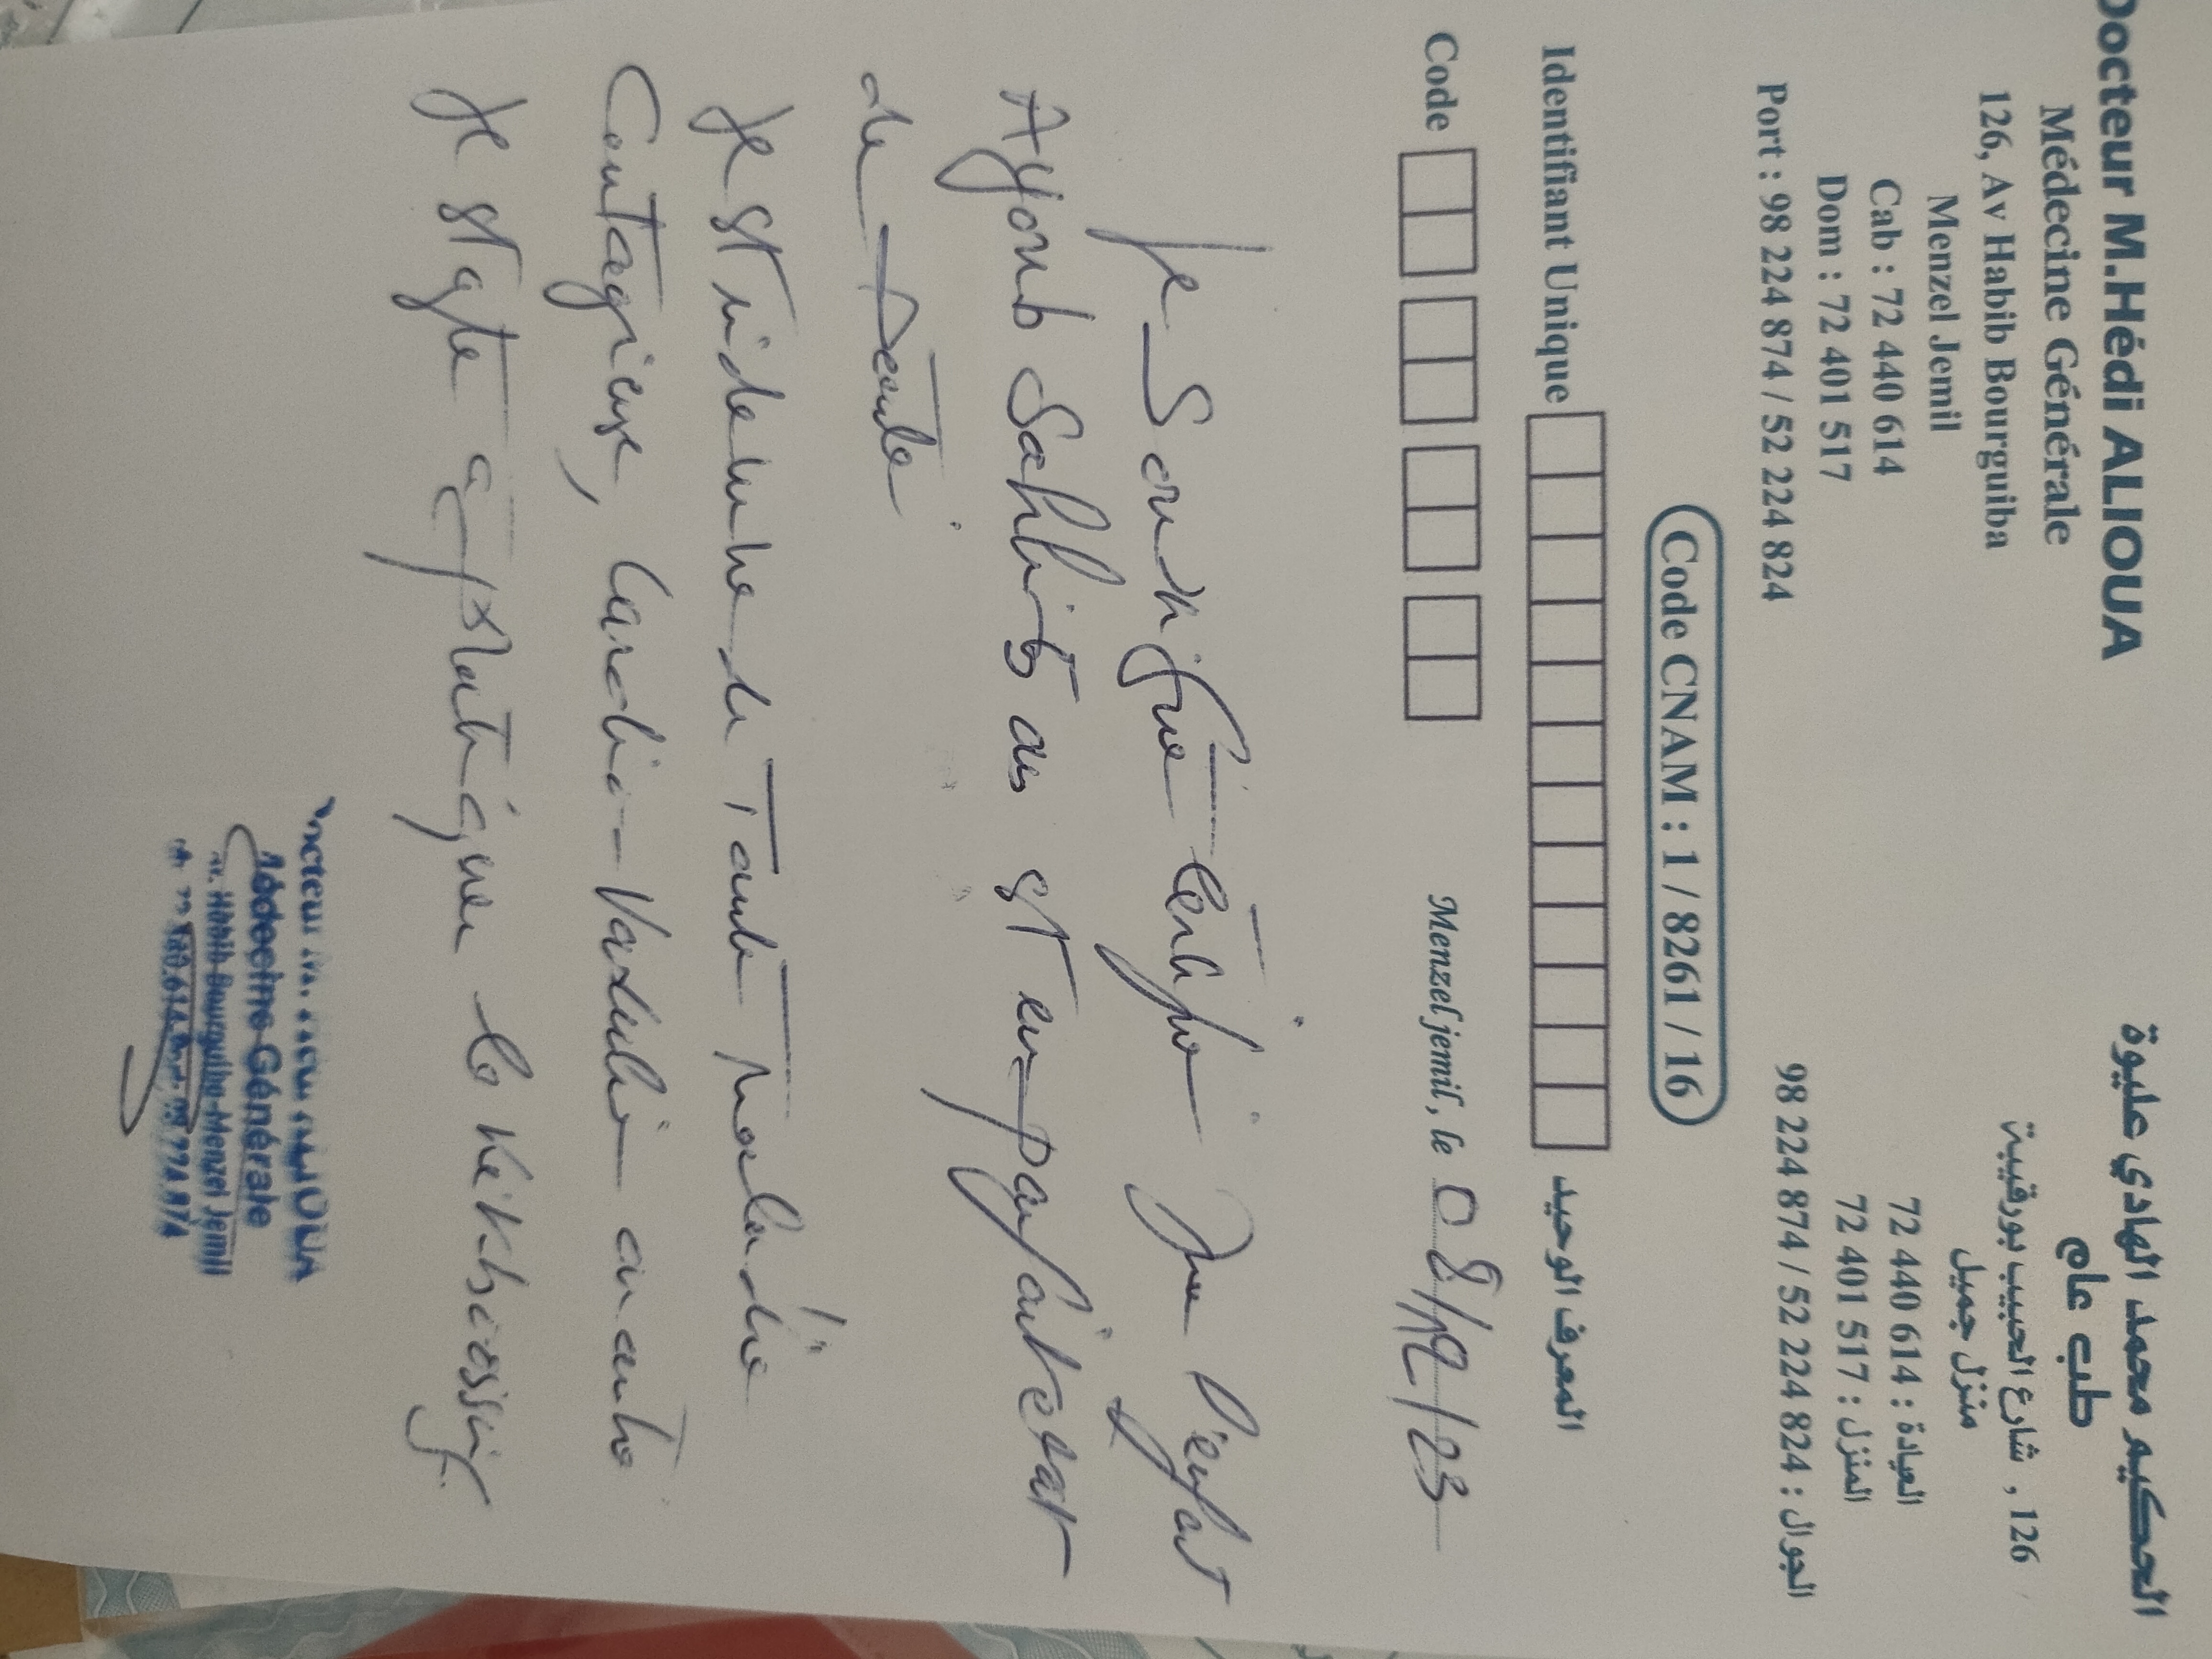 Docteur M.Hédi ALIOUA
Médecine Générale
126, Av Habib Bourguiba
Menzel Jemil
Cab : 72 440 614
Dom : 72 401 517
Port : 98 224 874 / 52 224 824
الحكيم محمد الهادي عليوة
طب عام
126 , شارع الحبيب بورقيبة
منزل جميل
العيادة : 72 440 614
المنزل : 72 401 517
الجوال : 98 224 874 / 52 224 824
Code CNAM : 1 / 8261 / 16
Identifiant Unique المعرف الوحيد
Code Menzel jemil, le 08/12/23
Je Soussigné certifie que l'enfant
Ayoub Sahli est en parfait état
de santé
Il est indemne de toute maladie
Contagieuse, Cardio-Vasculaire
Il est apte à pratiquer le kickboxing
Docteur M. Hédi ALIOUA
Médecine Générale
Av. Habib Bourguiba-Menzel Jemil
72 440.614 Port: 98 224 874